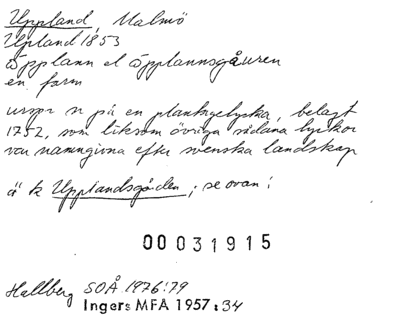 Uppland, Malmö
Upland 1853
öpplann el öpplannsgåuren
en farm
urspr n på en plantagelycka, belagt
1752, som liksom övriga sådana lyckor
var namngivna efter svenska landskap
ä k Upplandsgården; se ovan!
00031915
Hallberg SOÅ 1976:79
Ingers MFA 1957:34